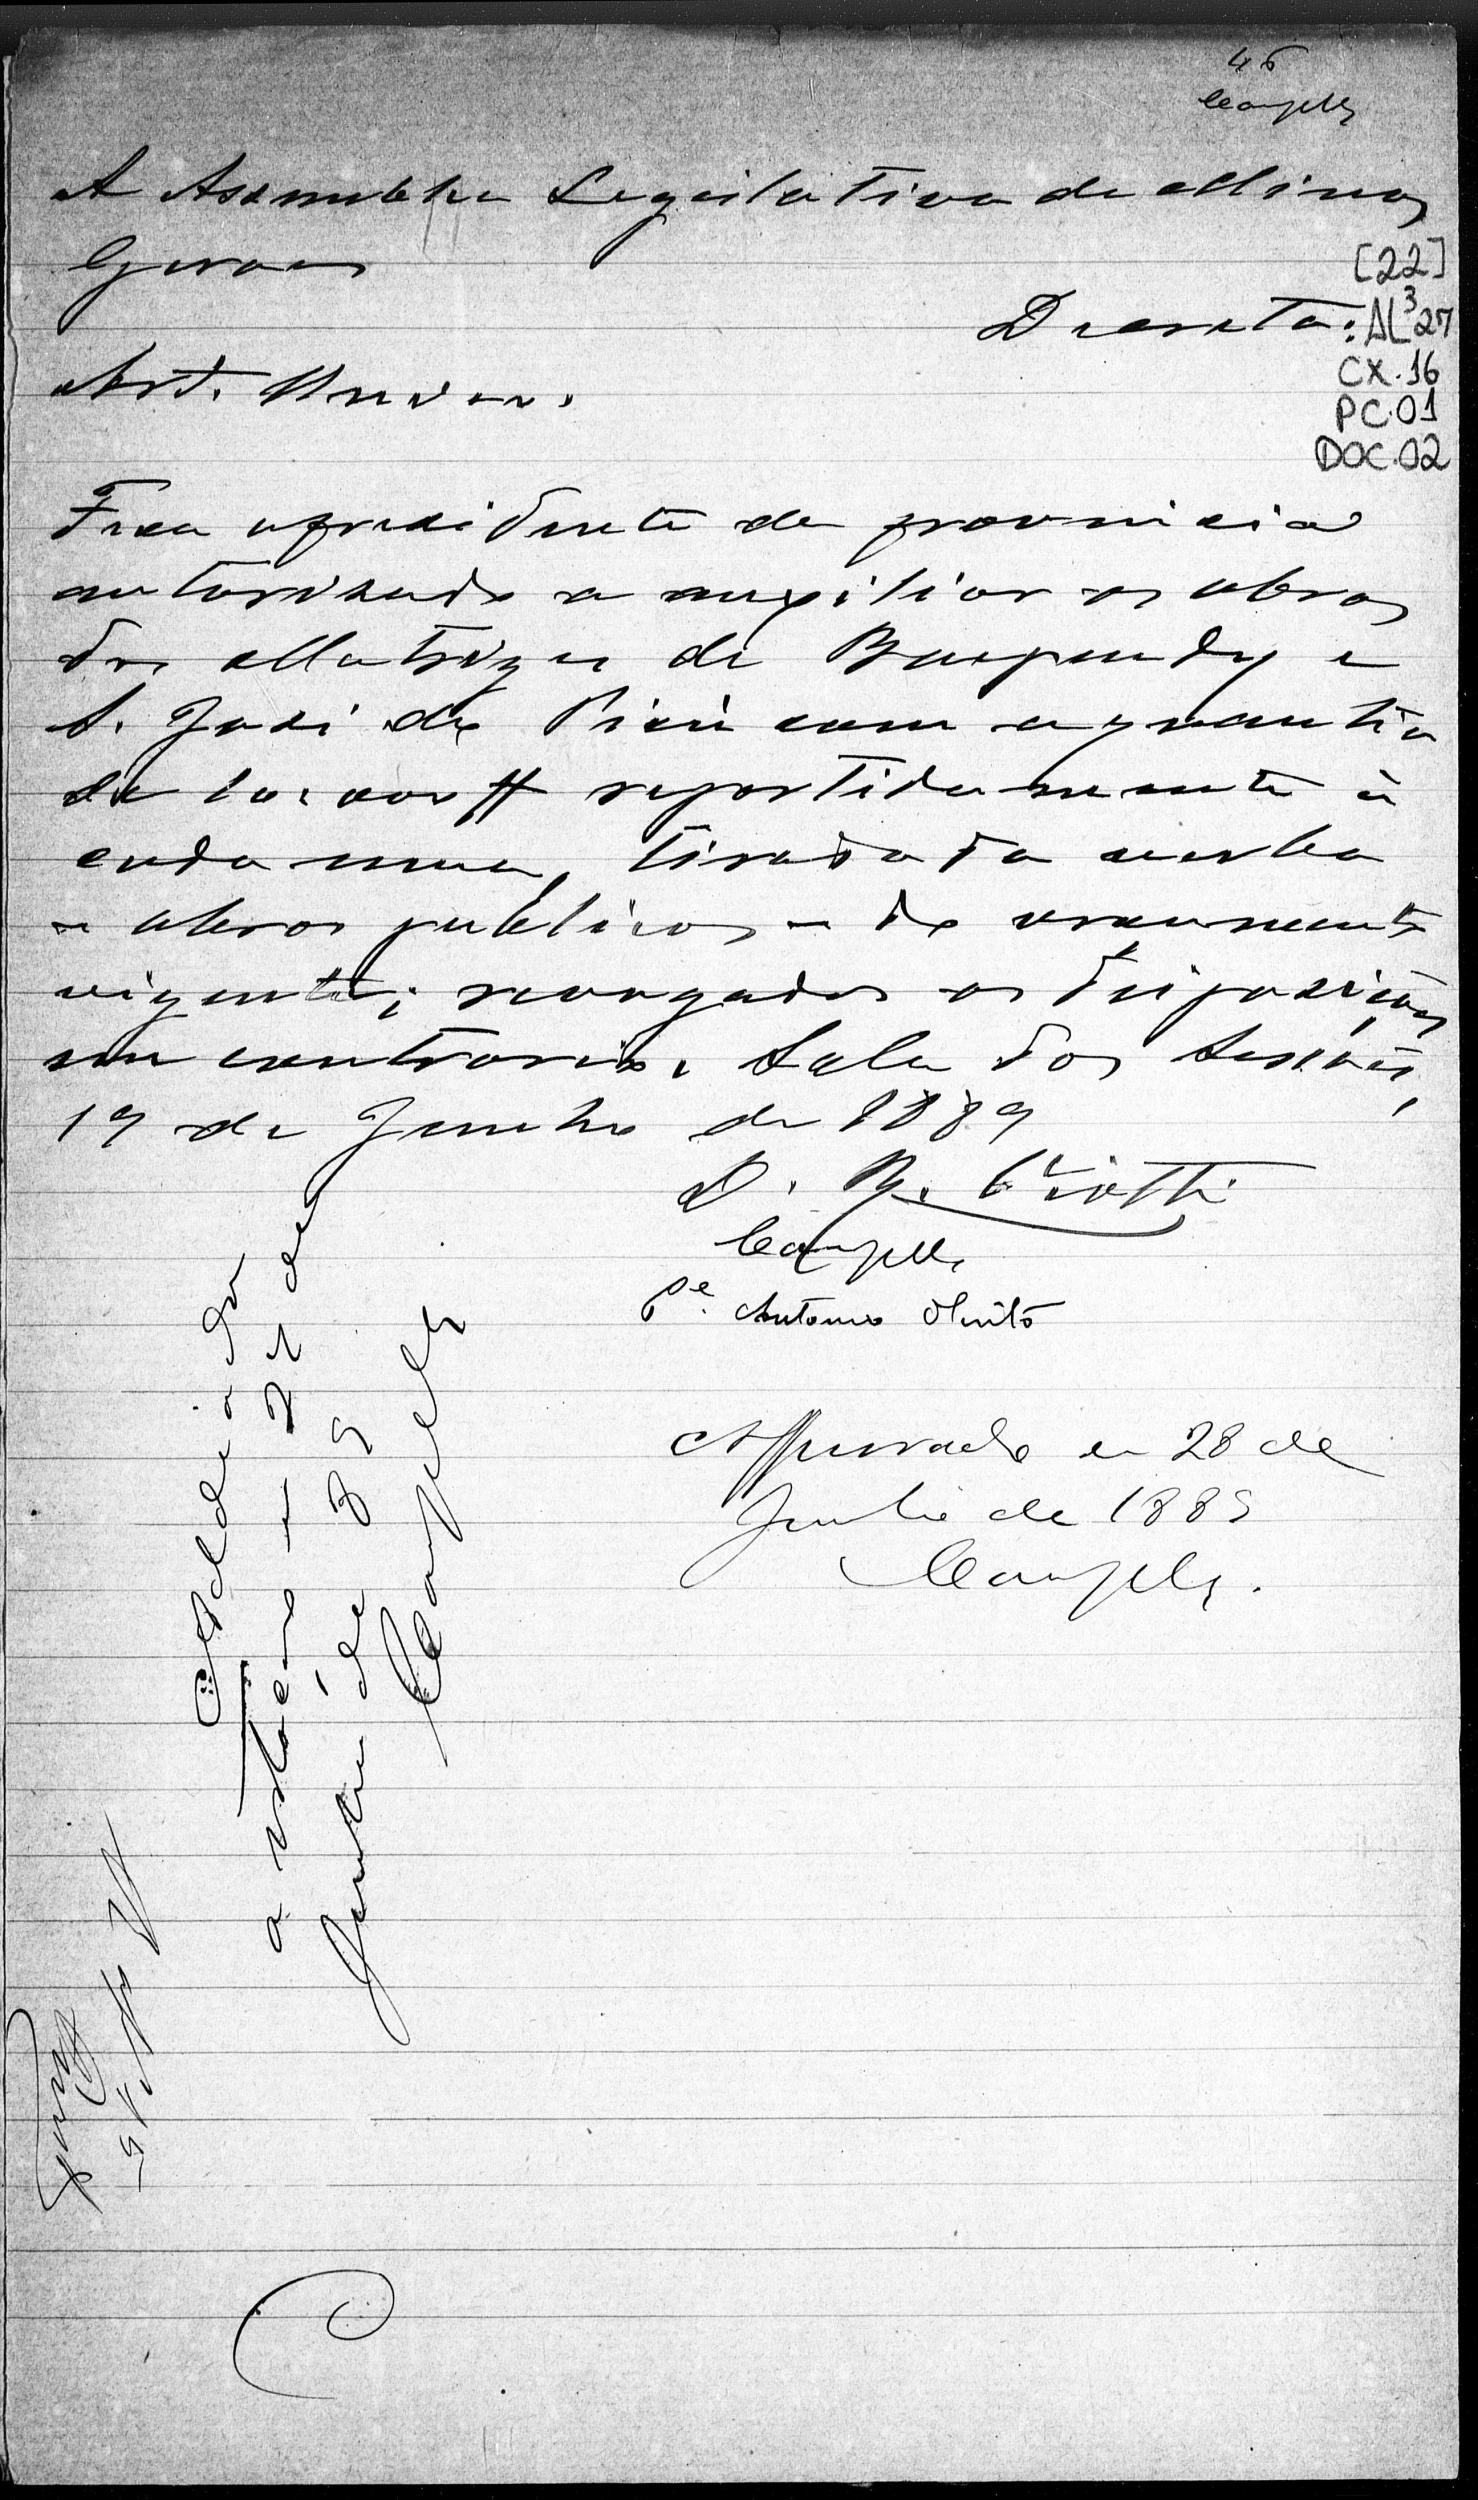 46
Campello
A Assemblea Legislativa de Minas
Geraes
[22]
Decreta:
AL³27
CX.16
PC.01
DOC.02
Art. Unico.
Fica o presidente da provincia
autorisado a auxiliar as obras
das Matrizes de Baependy e
S. José do Picú com a quantia
de repartidamente á
cada uma, tirada da verba
– obras publicas – do orçamento
vigente; revogadas as disposições
em contrario. Sala das Sessões,
19 de Junho de 1889
D. R. Viotti
Campello
Pe. Antonio
Approvado em 28 de
Junho de 1889
Campello.
Addiado
a votação a 21 de
Junho de 89
Campello